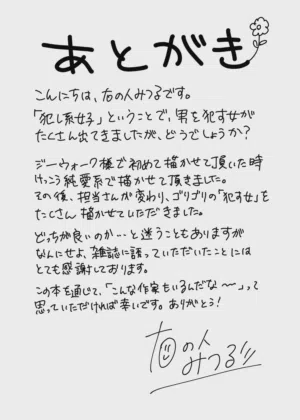 あとがき
こんにちは、右の人みつるです。
「犯し系女子」ということで、男を犯す女が
たくさん出てきましたが、どうでしょうか?
ジーウォーク様で初めて描かせて頂いた時
けっこう純愛系で描かせて頂きました。
その後、担当さんが変わり、ゴリゴリの「犯す女」を
たくさん描かせていただきました。
どっちが良いのか…と迷うこともありますが
なんにせよ、雑誌に誘っていただいたことには
とても感謝しております。
この本を通じて、「こんな作家もいるんだな～」って
思っていただければ幸いです。ありがとう!
右の人
みつる!!